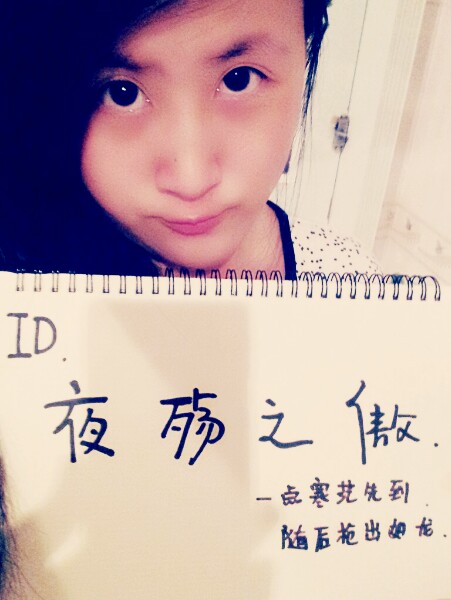 ID.
夜殇之傲.
一点寒芒先到.
随后枪出如龙.